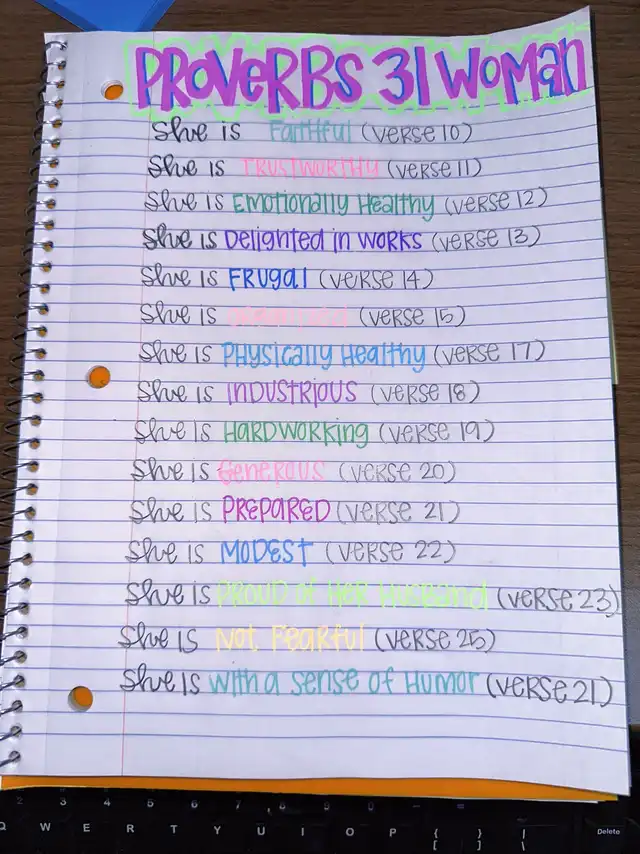 PROVERBS 31 WOMAN
She is Faithful (verse 10)
She is TRUSTWORTHY (verse 11)
She is Emotionally Healthy (verse 12)
She is Delighted in works (verse 13)
She is FRUGAL (verse 14)
She is (verse 15)
She is PHYSically Healthy (verse 17)
She is INDUSTRIOUS (verse 18)
She is HARDWORKING (verse 19)
She is Generous (verse 20)
She is PREPARED (verse 21)
She is MODEST (verse 22)
She is PROUD of Her Husband (verse 23)
She is Not Fearful (verse 25)
She is with a sense of Humor (verse 21)
2 3 4 5 6 7 8 9 0 - =
Q W E R T Y U I O P { } | Delete
[ ] \